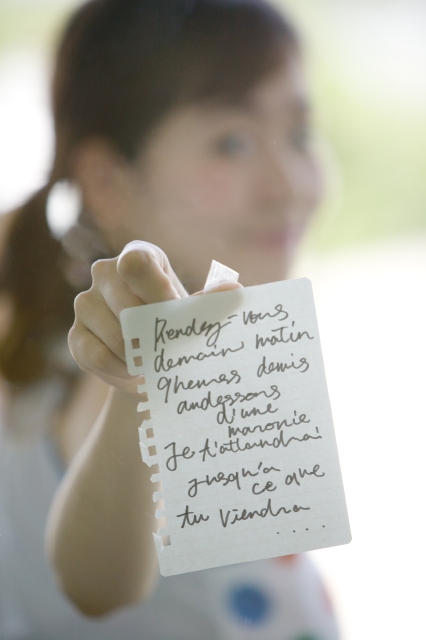 Rendez-vous
demain matin
9heures demis
audessous
d'une
maronie
Je t'attendrai
jusqu'a
ce que
tu viendra
....